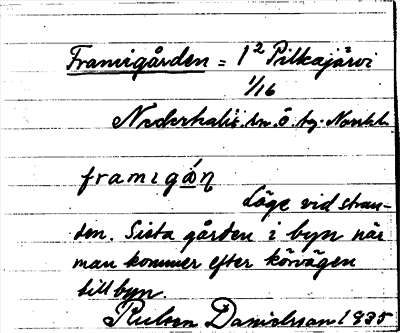 Framigården = 1² Pilkajärvi
1/16
Nederkalix sn. ö. by. Norrbt.
framigáṇ
Läge vid stran-
den. Sista gården i byn när
man kommer efter körvägen
till byn.
Danielsson 1935